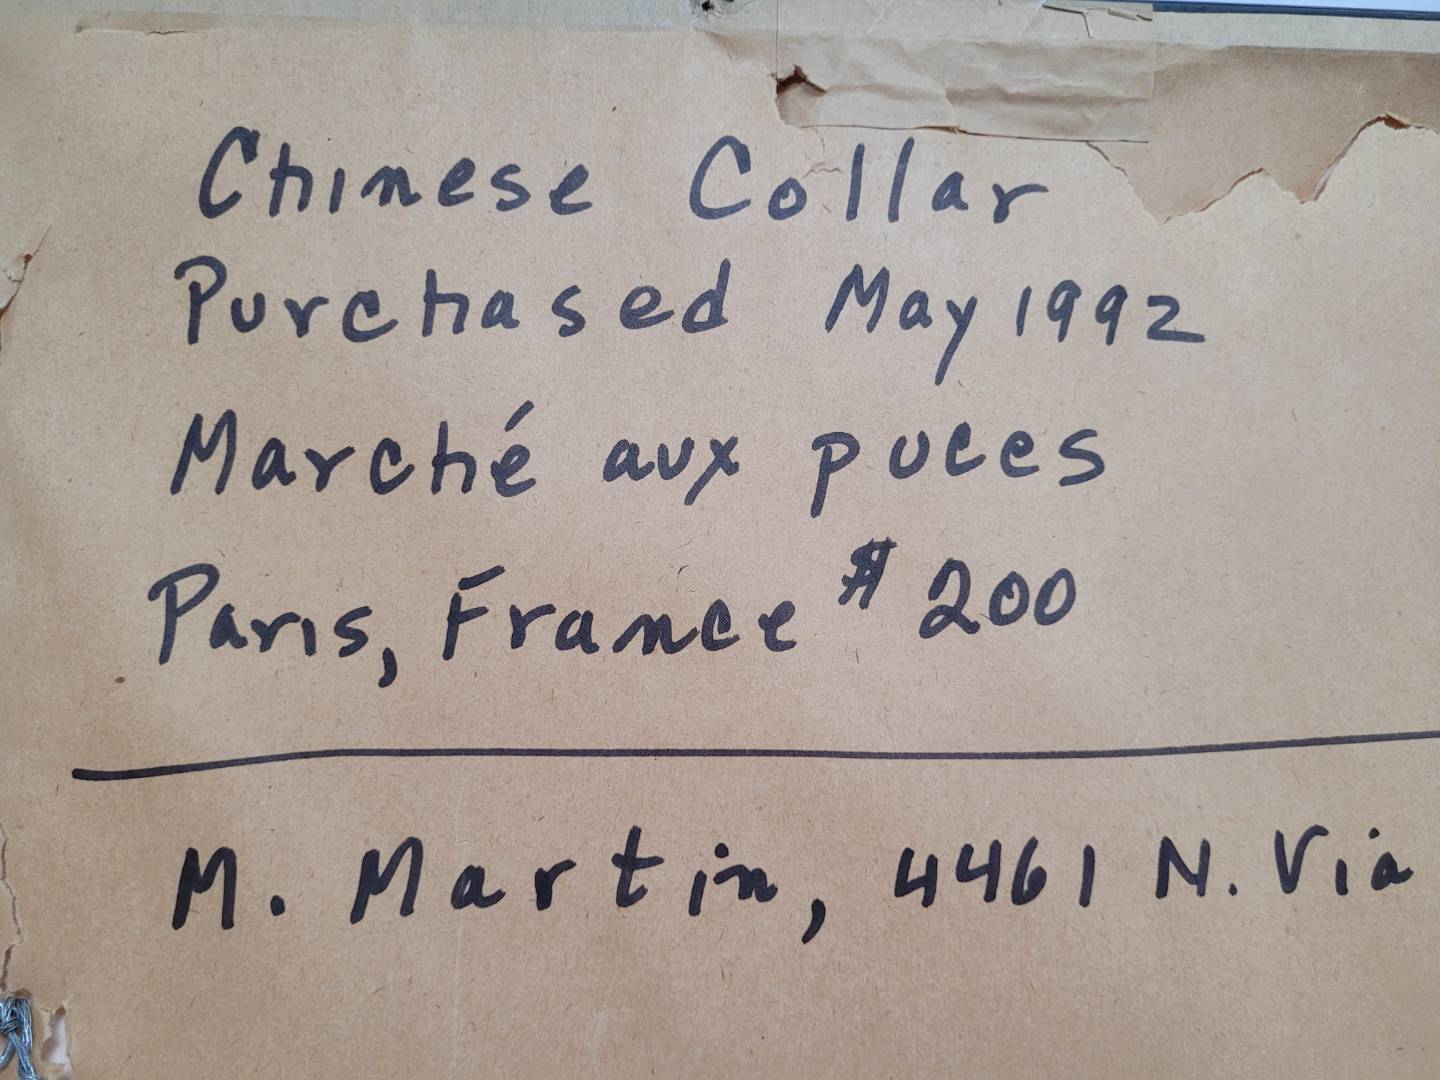 Chinese Collar
Purchased May 1992
Marché aux puces
Paris, France $200
M. Martin, 4461 N. Via